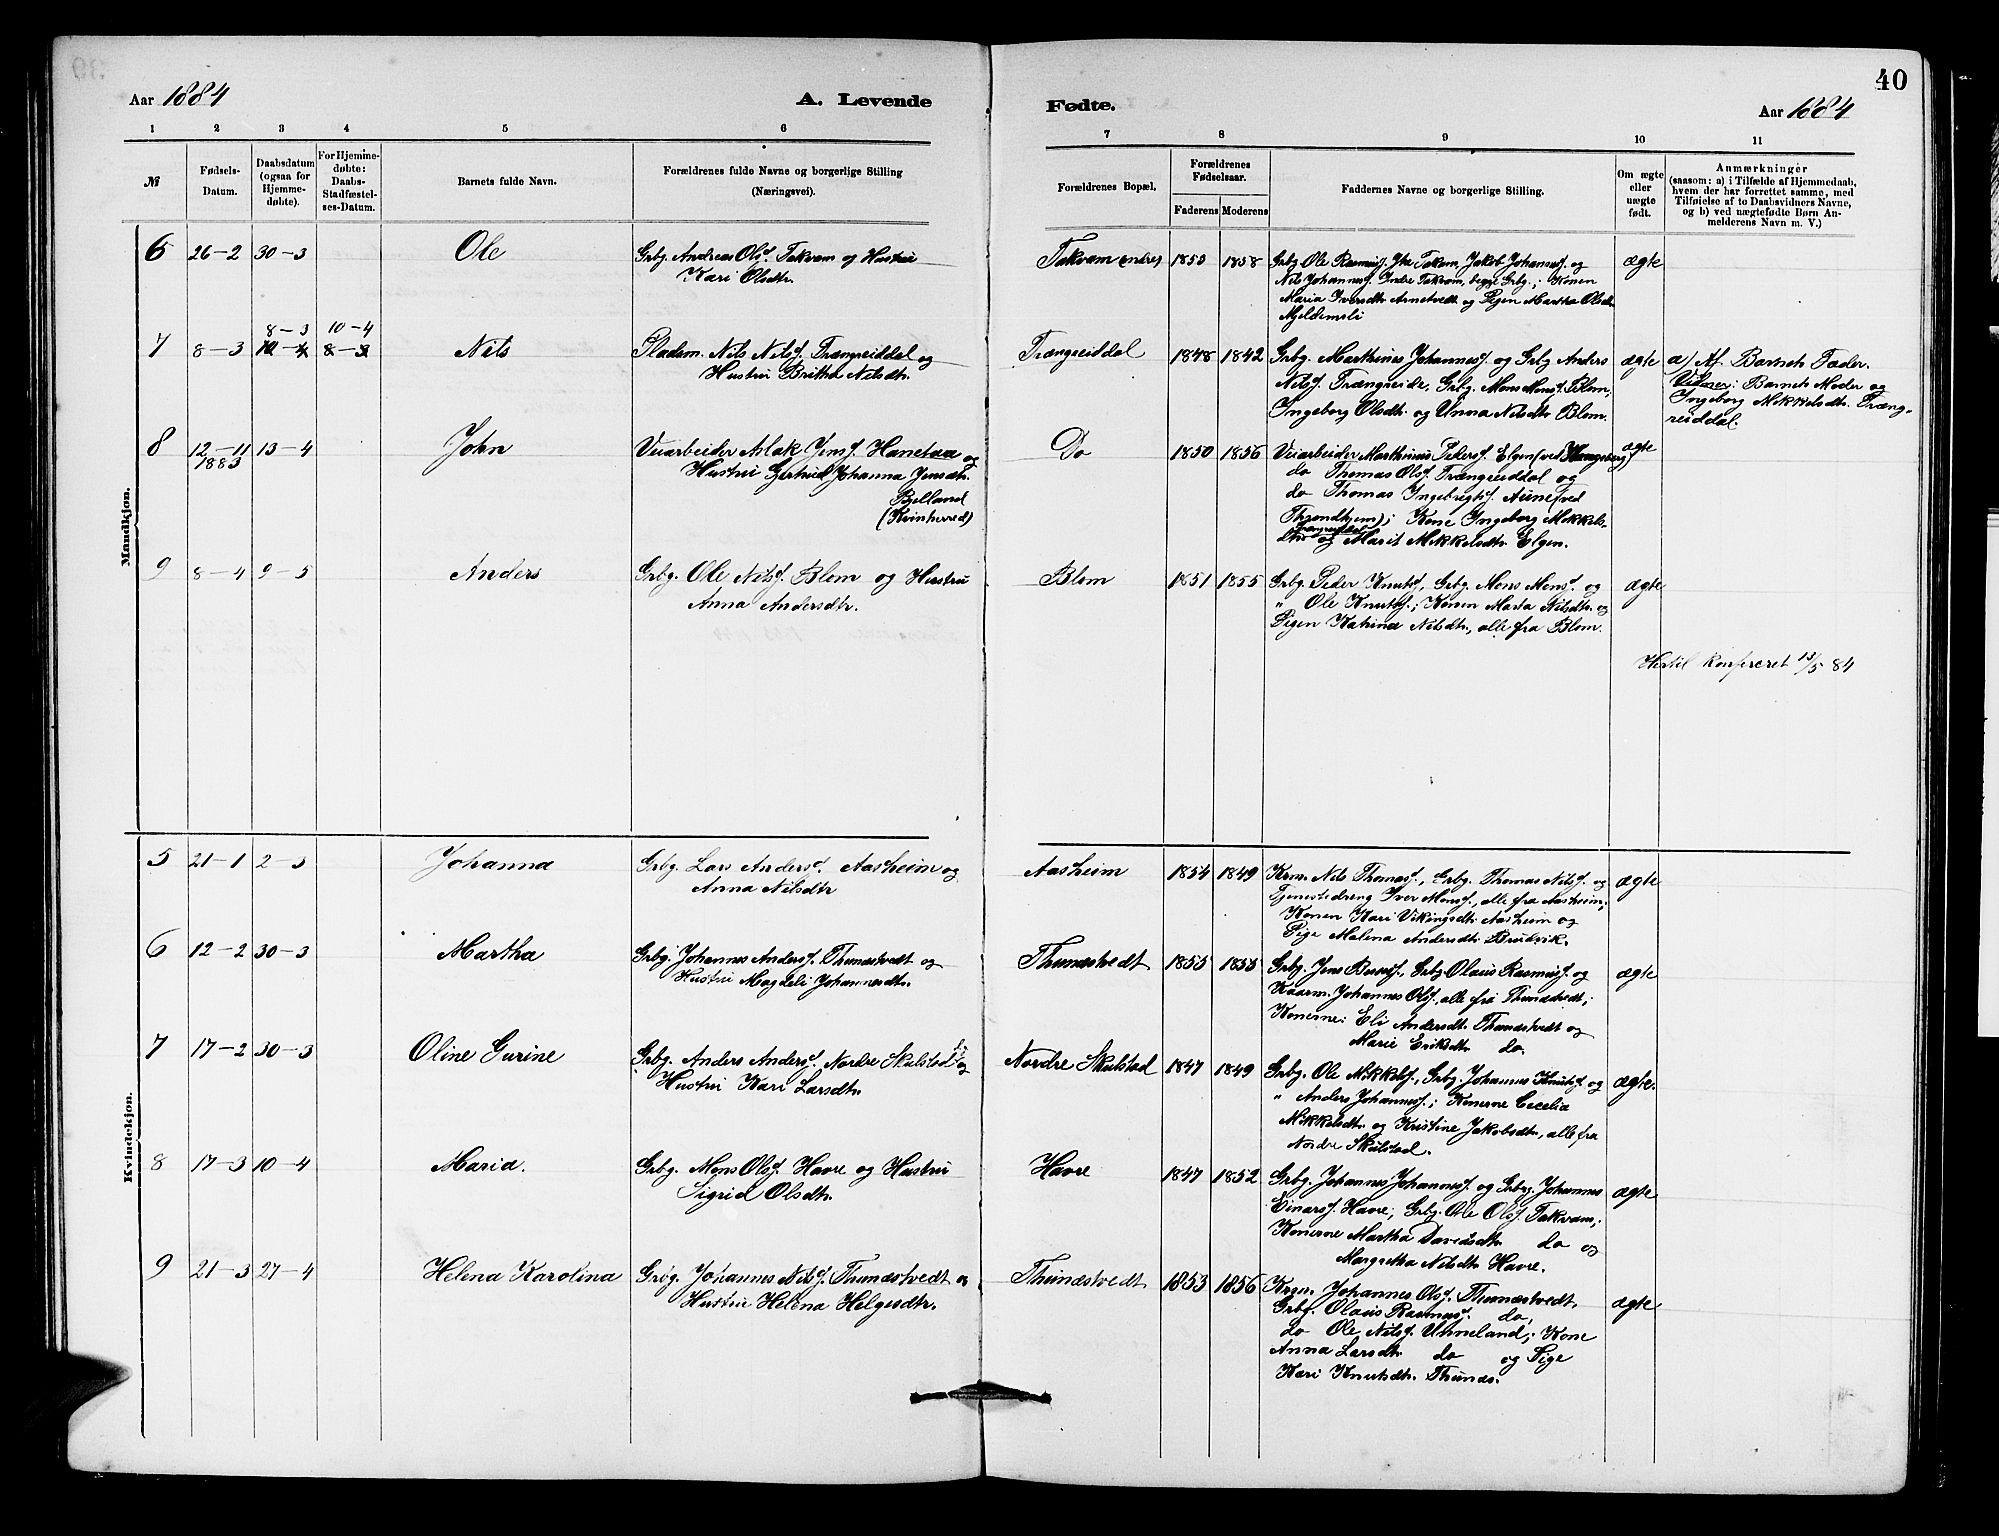 Aar 1884
A. Levende
Fødte.
Aar 1884
40
1 2 3 4 5 6 7 8 9 10 11
№
Fødsels-
Datum.
Daabsdatum
(ogsaa for
Hjemme-
døbte).
For Hjemme-
døbte:
Daabs-
Stadfæstel-
ses-Datum.
Barnets fulde Navn.
Forældrenes fulde Navne og borgerlige Stilling
(Næringsvei).
Forældrenes Bopæl,
Forældrenes
Fødselsaar.
Faderens Moderens
Faddernes Navne og borgerlige Stilling.
Om ægte
eller
uægte
født.
Anmærkninger
(saasom: a) i Tilfælde af Hjemmedaab,
hvem der har forrettet samme, med
Tilføielse af to Daabsvidners Navne,
og b) ved uægtefødte Børn An-
melderens Navn m. V.)
Mandkjøn.
6 26-2 30-3 Ole
Grbg. Andreas Olsd. Takvam og Hustru
Kari Olsdtr.
Takvam (indre) 1850 1858
Grbg Ole Rasmusf. Ytre Takvam, Jakob Johannesf. og
Nils Johannesf. Indre Takvam, begge Grbg.; Konen
Maria Iversdtr Arnetvedt og Pigen Martha Olsdtr
Mjeldemsli
ægte
8-3 10-4
7 8-3 10-4 8-3 Nils
Pladsm. Nils Nilsf. Trængreiddal og
Hustru Britha Nilsdtr.
Trængreiddal 1848 1842
Grbg. Marthines Johannesf. og Grbg Anders
Nilsf. Trængreide, Grbg. Mons Monsf. Blom;
Ingeborg Olsdtr. og Unna Nilsdtr Blom.
ægte
a) Af Barnets Fader.
Vidner: Barnets Moder og
Ingeborg Mikkelsdtr. Træng-
reiddal.
8 12-11 13-4 John
1883
Veiarbeider Aslak Jensf. Hanetaa og
Hustru Gertrud Johanna Jensdtr.
Bjelland
(Kvinherred)
Do 1850 1856
Veiarbeider Marthinus Pedersf. Elgen (ved Kongsberg)
do Thomas Olsf. Trængreiddal og
do Thomas Ingebrigtsf. Aune (ved
Throndhjem); Kone Ingeborg Mikkels-
dtr Trængreiddal og Marit Mikkelsdtr. Elgen.
ægte
9 8-4 9-5 Anders
Grbg. Ole Nilsf. Blom og Hustru
Anna Andersdtr.
Blom 1851 1855
Grbg. Peder Knutsf., Grbg Mons Monsd og
" Ole Knutsf.; Konen Marta Nilsdtr. og
Pigen Katrina Nilsdtr., alle fra Blom.
ægte
Hertil konfereret 13/5 84
Kvindekjøn.
5 21-1 2-3 Johanna
Grbg. Lars Andersd. Aasheim og
Anna Nilsdtr
Aasheim 1854 1849
Krm. Nils Thomasf., Grbg. Thomas Nilsf. og
Tjenestedreng Iver Monsf., alle fra Aasheim;
Konen Kari Vikingsdtr. Aasheim og
Pige Malena Andersdtr. Brudvik.
ægte
6 12-2 30-3 Martha
Grbg. Johannes Andersf. Thunæstvedt og
Hustru Magdeli Johannesdtr.
Thunæstvedt 1855 1855
Grbg. Jens Bensf., Grbg Olaus Rasmusf. og
Kaarm. Johannes Olsf., alle fra Thunæstvedt;
Konerne: Eli Andersdtr. Thunæstvedt og
Marie Eriksdtr do.
ægte
7 17-2 30-3 Oline Gurine
Grbg. Anders Andersf. Nordre Skulstad og
Hustru Kari Larsdtr.
Nordre Skulstad 1847 1849
Grbg. Ole Mikkelsf., Grbg. Johannes Knutsf og
" Anders Johannesf.; Konerne Cecelia
Mikkelsdtr. og Kristine Jakobsdtr., alle fra
Nordre Skulstad.
ægte.
8 17-3 10-4 Maria.
Grbg. Mons Olsf. Havre og Hustru
Sigrid Olsdtr.
Havre 1847 1852
Grbg. Johannes Johannesf. og Grbg Johannes
Einarsf. Havre; Grbg. Ole Olsf. Takvam;
Konerne Martha Davidsdtr. do og
Margretha Nilsdtr Havre.
ægte
9 21-3 27-4 Helena Karolina
Grbg. Johannes Nilsf. Thunæstvedt og
Hustru Helena Helgesdtr.
Thunæstvedt 1853 1856
Krm. Johannes Olsf. Thunæstvedt.
Grbg. Olaus Rasmusf. do,
do Ole Nilsf. Unneland; Kone
Anna Larsdtr do og Pige
Kari Knutsdtr. Thunæs.
ægte